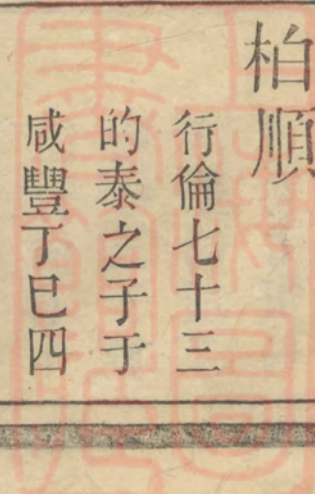 柏順
行倫七十三
的泰之子于
咸豐丁巳四